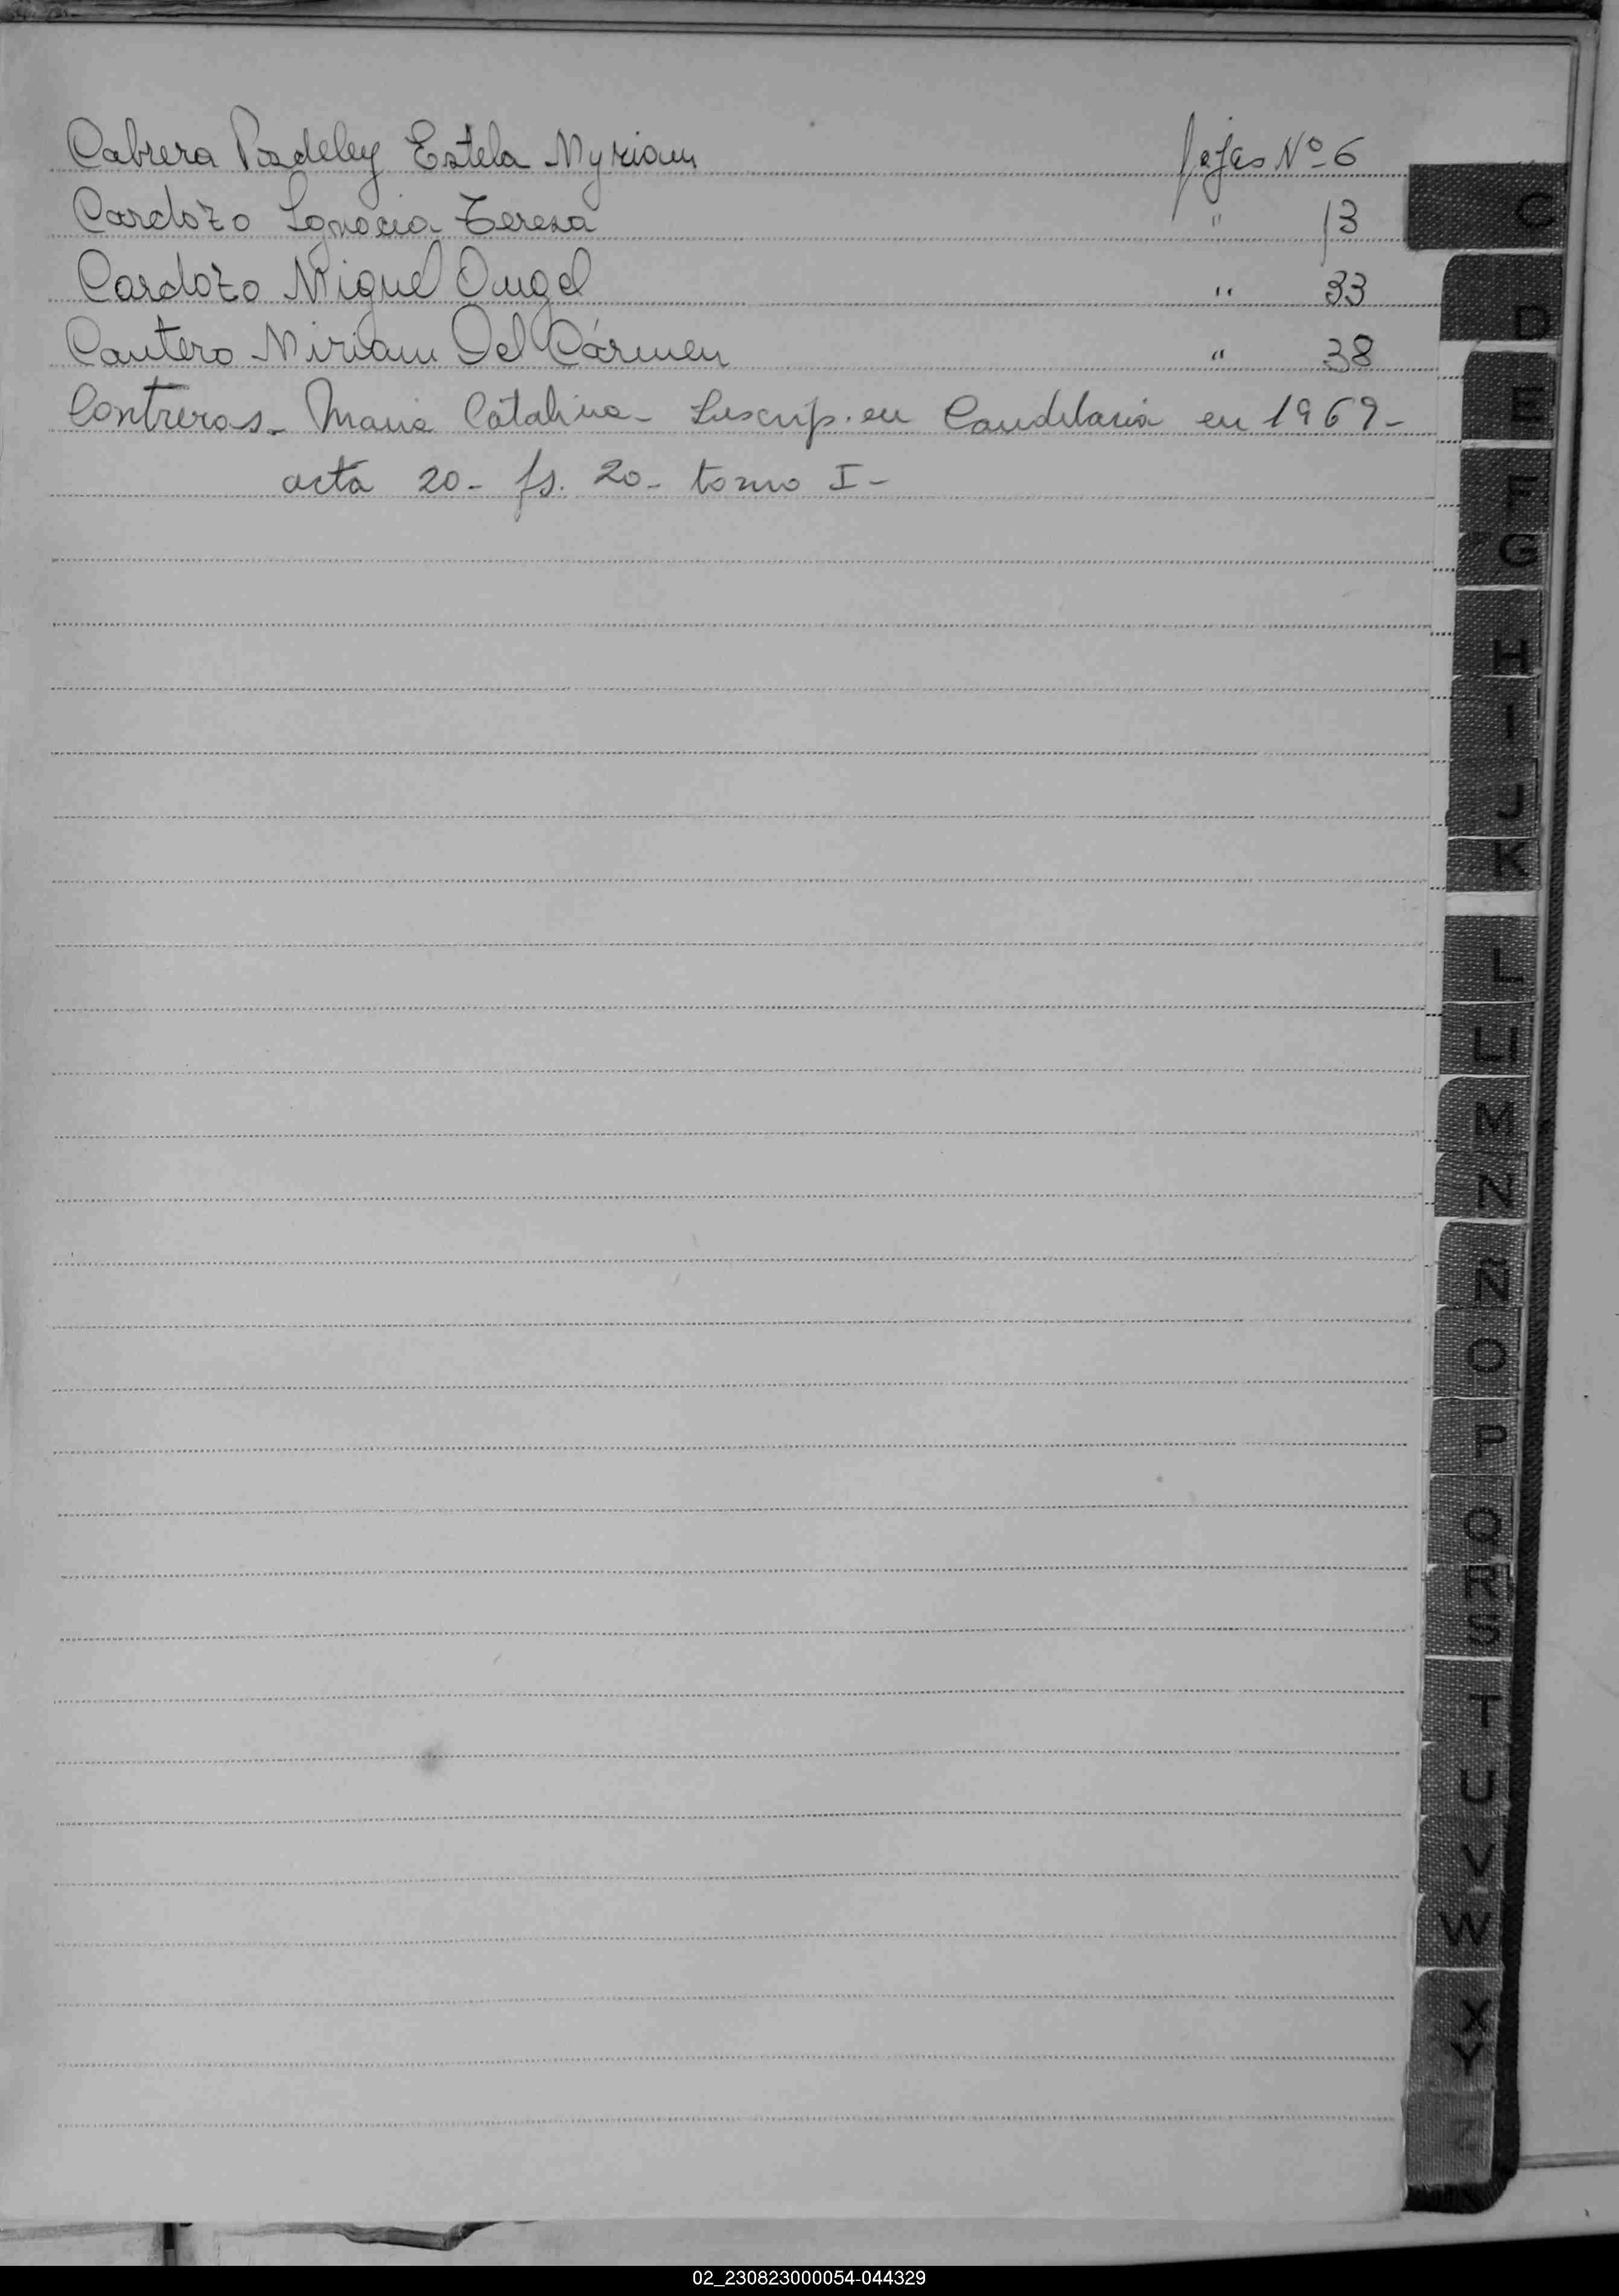 Cabrera Padeley Estela Myriam fojas Nº 6
Cardozo Ignacia Teresa " 13
Cardozo Miguel Angel " 33
Cantero Miriam Del Cármen " 38
Contreras - Maria Catalina - Inscrip. en Candelaria en 1969 -
acta 20 - fs. 20 - tomo I -
C
D
E
F
G
H
I
J
K
L
Ll
M
N
Ñ
O
P
Q
R
S
T
U
V
W
X
Y
Z
02_230823000054-044329